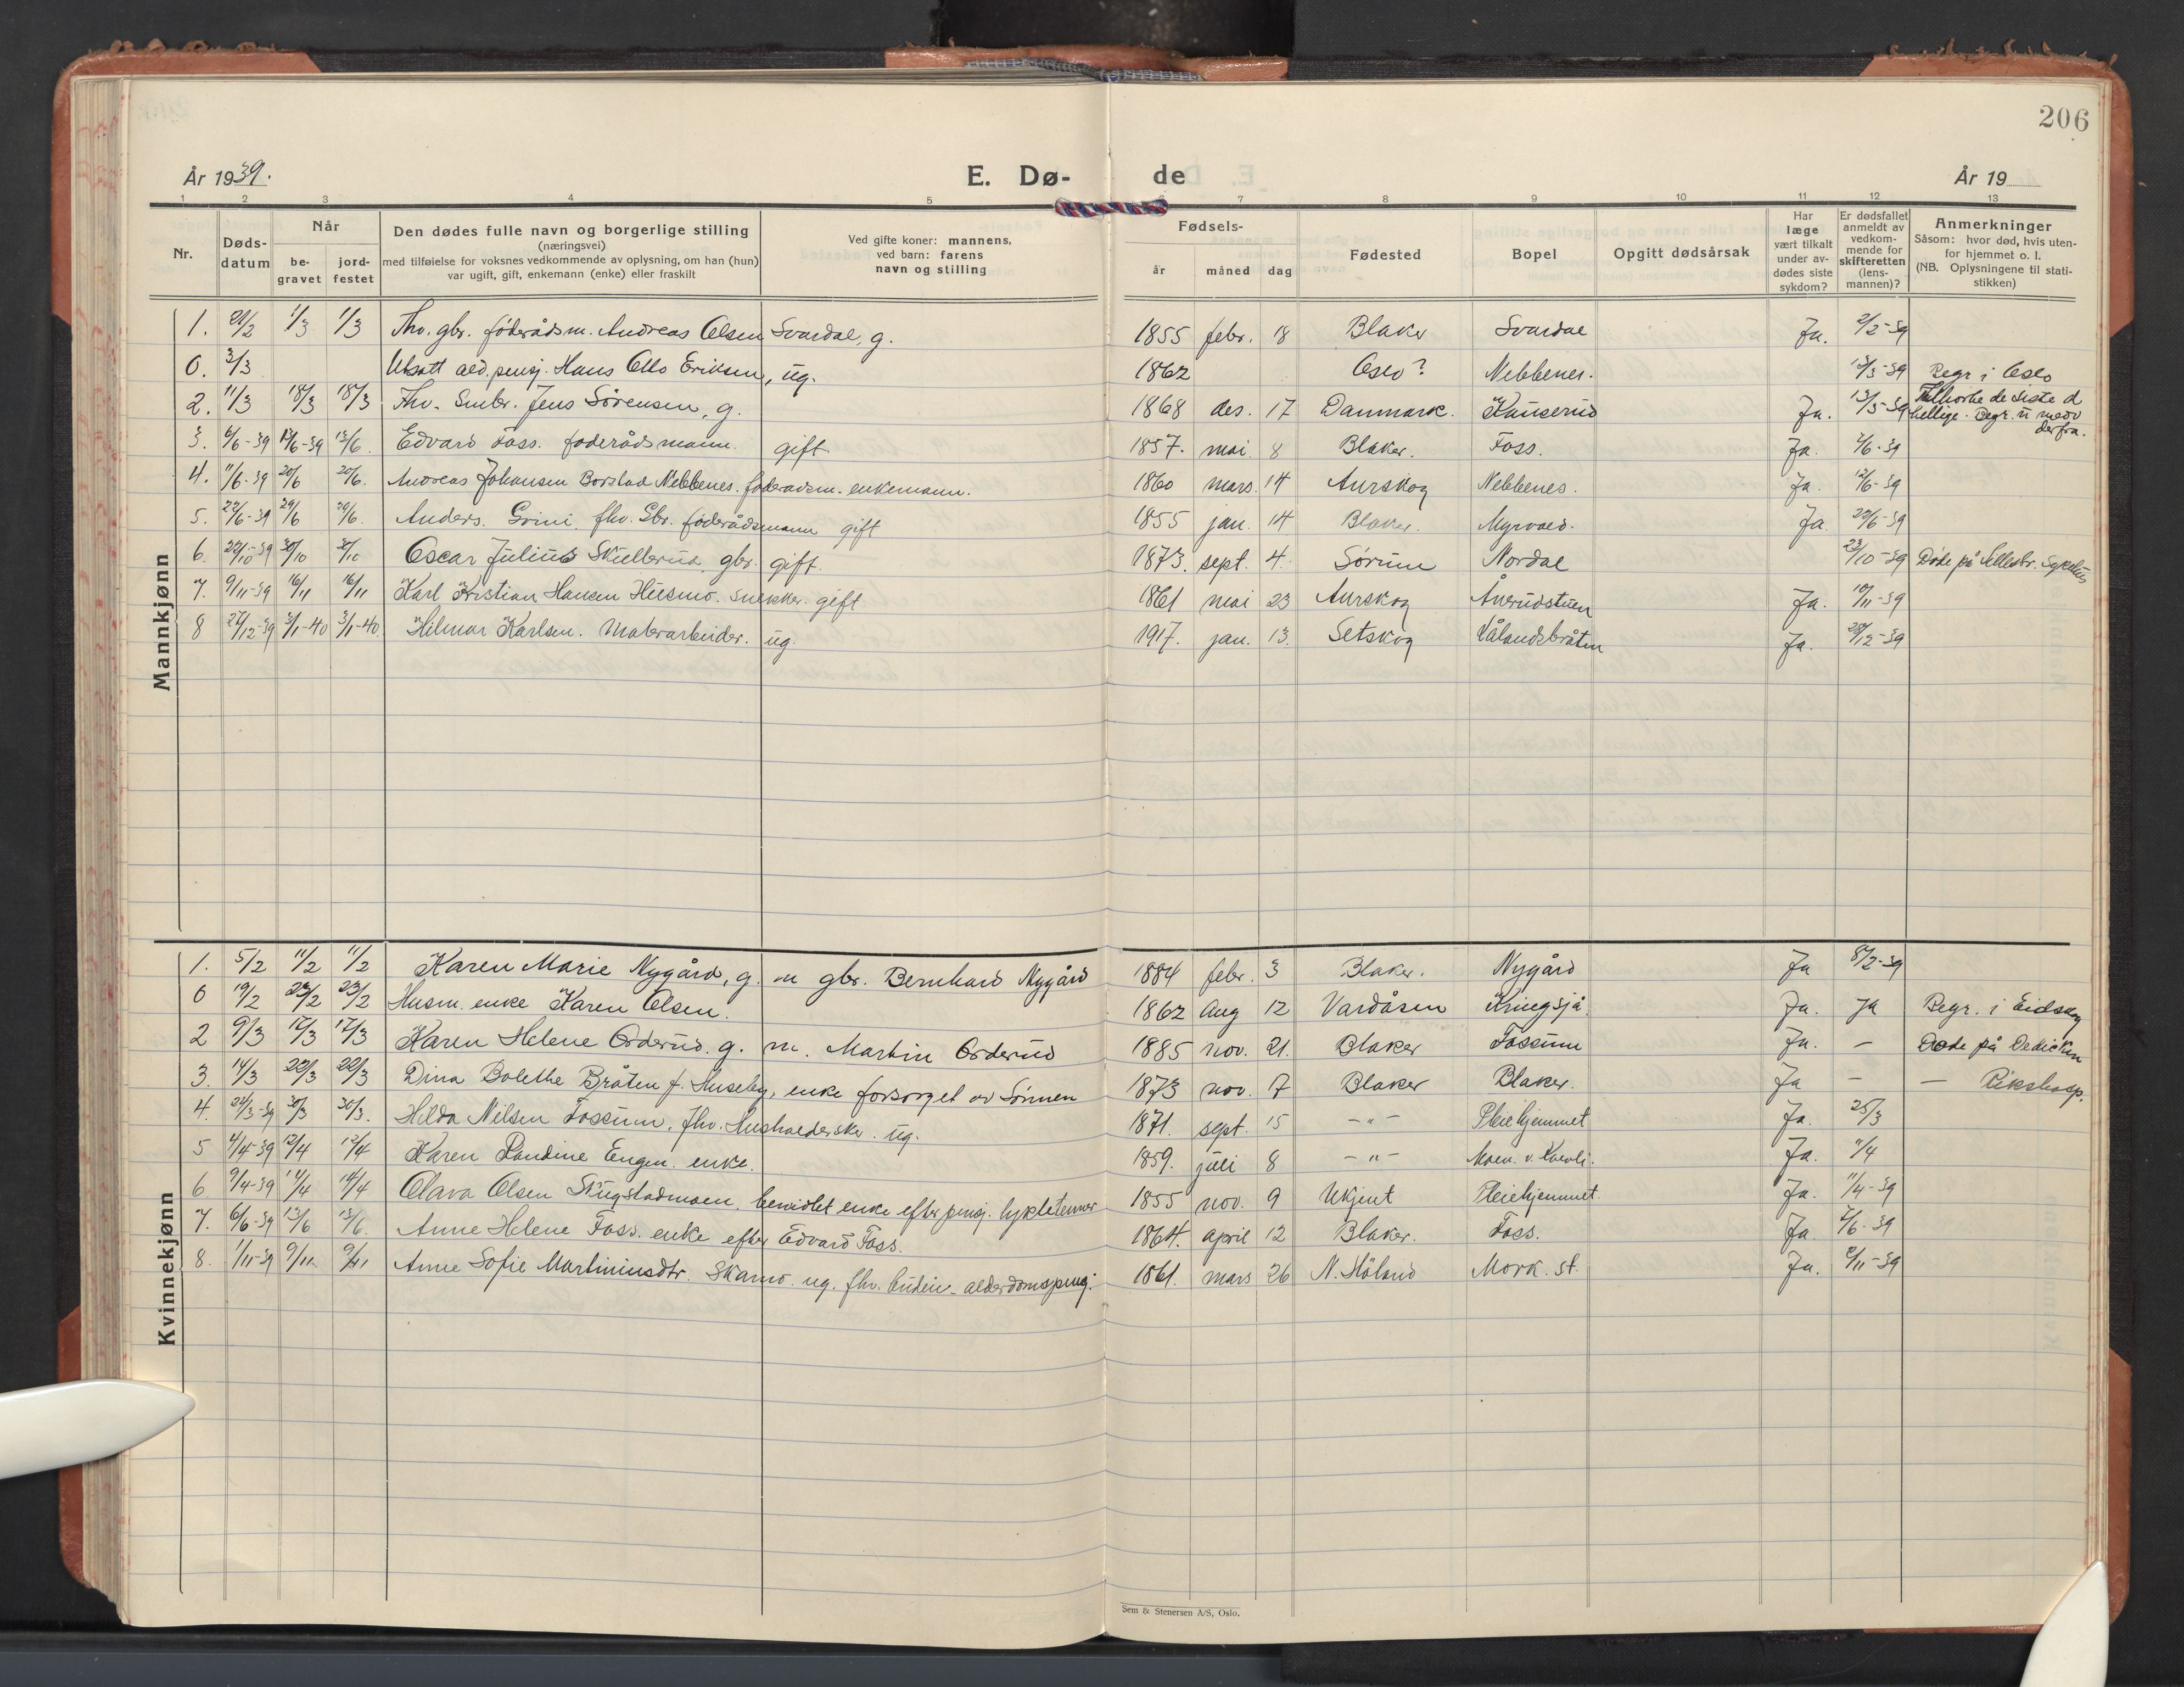 206
År 1939. E. Dø- de År 19
1 2 3 4 5 7 8 9 10 11 12 13
Nr. Døds-datum Når be-gravet jord-festet Den dødes fulle navn og borgerlige stilling (næringsvei) med tilføielse for voksnes vedkommende av oplysning, om han (hun) var ugift, gift, enkemann (enke) eller fraskilt Ved gifte koner: mannens, ved barn: farens navn og stilling Fødsels- år måned dag Fødested Bopel Opgitt dødsårsak Har læge vært tilkalt under av-dødes siste sykdom? Er dødsfallet anmeldt av vedkom-mende for skifteretten (lens-mannen)? Anmerkninger Såsom: hvor død, hvis uten-for hjemmet o. l. (NB. Oplysningene til stati-stikken)
Mannkjønn
1. 21/2 1/3 1/3 Fhv. gbr. føderådsm. Andreas Olsen Svardal, g. 1855 febr. 18 Blaker Svardal Ja. 2/2-39
0. 3/3 Utsatt ald.pensj. Hans Otto Eriksen, ug. 1862 Oslo? Nebbenes. 13/3-39 Begr i Oslo
2. 11/3 18/3 18/3 Fhv. Smbr. Jens Sørensen, g. 1868 des. 17 Danmark. Kauserud Ja. 13/3-39 Tilhørte de siste d hellige. Begr. u medv derfra.
3. 6/6-39 13/6-39 13/6. Edvard Foss. føderådsmann. gift. 1857. mai 8 Blaker. Foss. Ja. 7/6-39
4. 11/6-39 20/6 20/6. Andreas Johansen Borstad Nebbenes. føderådsm. enkemann. 1860 mars. 14 Aurskog Nebbenes. Ja. 12/6-39
5. 22/6-39 29/6 29/6. Anders. Grini. fhv. Gbr. føderådsmann gift 1855 jan. 14 Blaker. Myrvold. Ja. 22/6-39
6. 22/10-39 30/10 30/10 Oscar Julius Skullerud, gbr. gift. 1873. sept. 4. Sørum Nordal 23/10-39 Døde på Lillestr. Sykehus
7. 9/11-39 16/11 16/11 Karl Kristian Hansen Husmo. snekker. gift 1861 mai 23 Aurskog Ånerudstuen Ja. 10/11-39
8 27/12-39 3/1-40 3/1-40 Hilmar Karlsen. Møterarbeider. ug. 1917. jan. 13. Setskog Vålandsbråten Ja. 28/12-39
Kvinnekjønn
1. 5/2 11/2 11/2 Karen Marie Nygård, g. m gbr. Bernhard Nygård 1884 febr. 3 Blaker. Nygård Ja 8/2-39
0 19/2 23/2 23/2 Husm. enke Karen Olsen. 1862 Aug 12 Vardåsen Kringsjå. Ja. Ja Begr. i Eidskog
2 9/3 17/3 17/3 Karen Helene Orderud. g. m. Martin Orderud 1885 nov. 21. Blaker Fossum Ja. – Døde på Dedichen
3. 14/3 22/3 22/3 Dina Bolethe Bråten f. Huseby, enke forsørget av Sønnen 1873 nov. 17 Blaker Blaker. Ja – – Rikshosp.
4. 24/3-39 30/3 30/3. Hilda Nilsen Fossum. fhv. Husholderske. ug. 1871. sept. 15 –"– Pleiehjemmet Ja. 25/3
5 4/4-39 12/4 12/4 Karen Randine Engen. enke. 1859. juli 8 –"– Moen. v. Kvevli. Ja. 11/4
6. 9/4-39 14/4 14/4 Olava Olsen Skugstadmoen. bemidlet enke efter pensj. lyktetenner 1855 nov. 9 Ukjent Pleiehjemmet. Ja. 11/4-39
7. 6/6-39 13/6 13/6. Anne Helene Foss. enke efter Edvard Foss. 1864. april 12 Blaker. Foss. Ja 7/6-39
8. 1/11-39 9/11 9/11 Anne Sofie Martiniusdtr. Skamo. ug. fhv. budeie – alderdomspensj. 1861. mars 26 N. Høland Mork. st. Ja. 2/11-39
Sem & Stenersen A/S, Oslo.